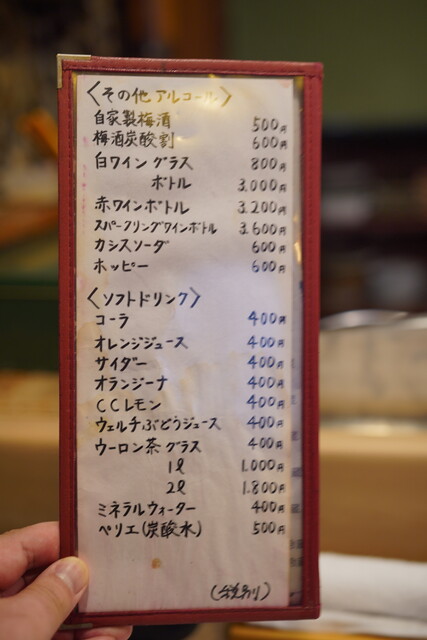 〈その他アルコール〉
自家製梅酒 500円
梅酒炭酸割 600円
白ワイン グラス 800円
ボトル 3.000円
赤ワインボトル 3.200円
スパークリングワインボトル 3.600円
カシスソーダ 600円
ホッピー 600円
〈ソフトドリンク〉
コーラ 400円
オレンジジュース 400円
サイダー 400円
オランジーナ 400円
CCレモン 400円
ウェルチぶどうジュース 400円
ウーロン茶 グラス 400円
1ℓ 1.000円
2ℓ 1.800円
ミネラルウォーター 400円
ペリエ(炭酸水) 500円
(税別)